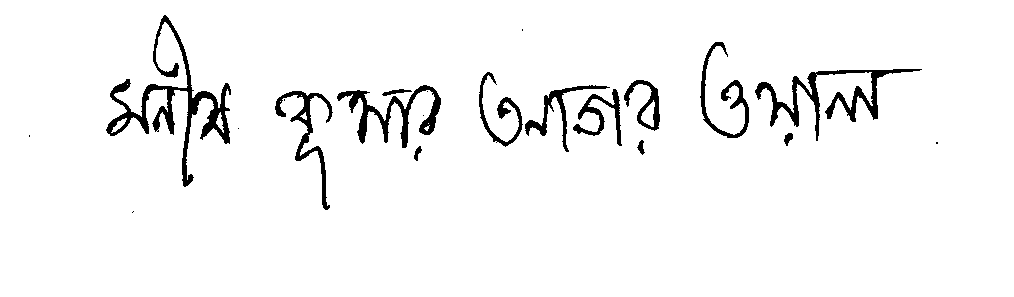 মনীষ কুমার আগার ওয়াল